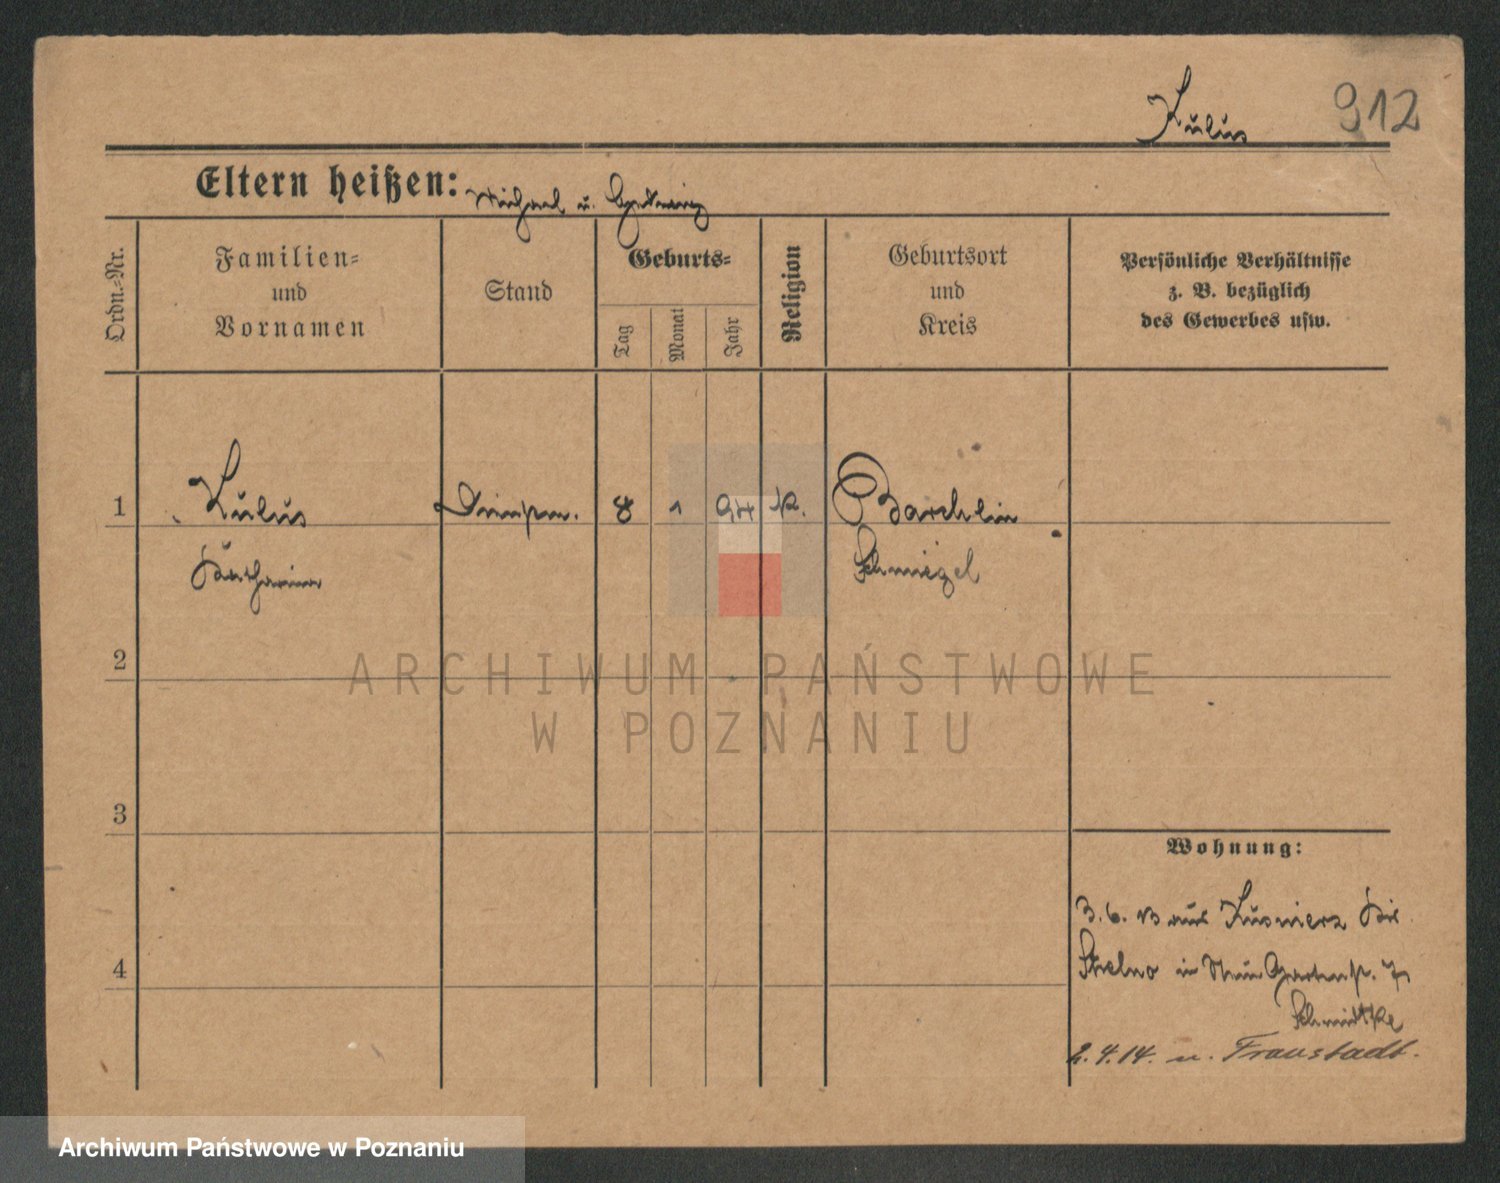 Kulus 912
Eltern heißen: Michael u. Hedwig
Ordn.-Nr.
Familien-
und
Vornamen
Stand
Geburts-
Tag
Monat
Jahr
Religion
Geburtsort
und
Kreis
Persönliche Verhältnisse
z. B. bezüglich
des Gewerbes usw.
1 Kulus 8 1 94 k. Barchlin
Katharina Schmiegel
2
3
4
Wohnung:
3.6.13 aus Kusnierz Krs.
Strelno in Gartenstr. 7
Schmidtke
2.4.14. n. Fraustadt.
ARCHIWUM PAŃSTWOWE
W POZNANIU
Archiwum Państwowe w Poznaniu